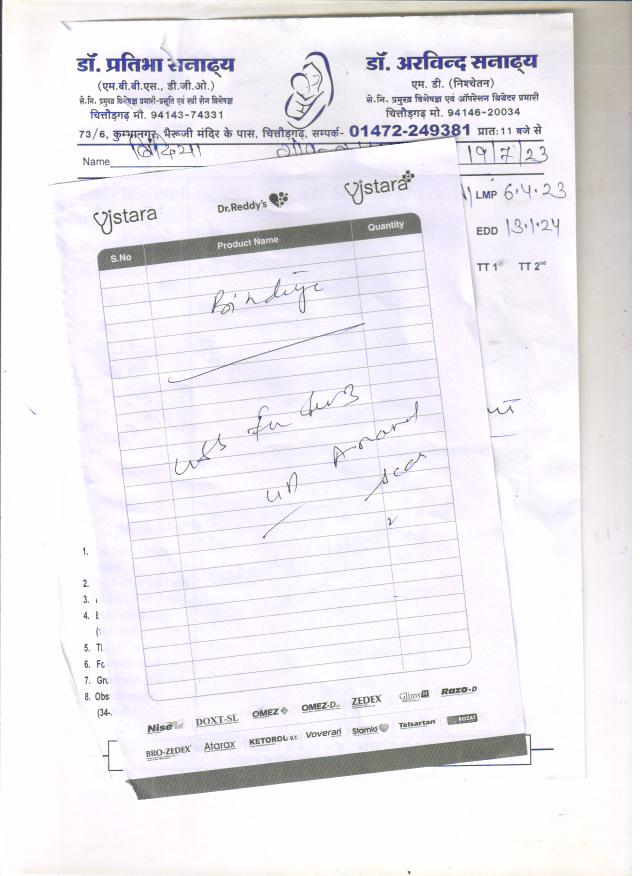 डॉ. प्रतिभा सनाढ्य
(एम.बी.बी.एस., डी.जी.ओ.)
से.नि. प्रमुख विशेषज्ञ प्रभारी-प्रसूति एवं स्त्री रोग विशेषज्ञ
चित्तौड़गढ़ मो. 94143-74331
डॉ. अरविन्द सनाढ्य
एम. डी. (निश्चेतन)
से.नि. प्रमुख विशेषज्ञ एवं ऑपरेशन थियेटर प्रभारी
चित्तौड़गढ़ मो. 94146-20034
73/6, कुम्भानगर, भैरूजी मंदिर के पास, चित्तौड़गढ़, सम्पर्क- 01472-249381 प्रातः 11 बजे से
Name 19/7/23
LMP 6.4.23
EDD 13.1.24
TT 1st TT 2nd
Vistara Dr.Reddy's Vistara
S.No Product Name Quantity
Bindiya
Anand
1.
2.
3.
4.
5.
6.
7.
8. Obs
(34-
Nise DOXT-SL OMEZ OMEZ-D ZEDEX Glimy M Razo-D
BRO-ZEDEX Atarax KETOROL D.T. Voveran Stamlo Telsartan ROZAT